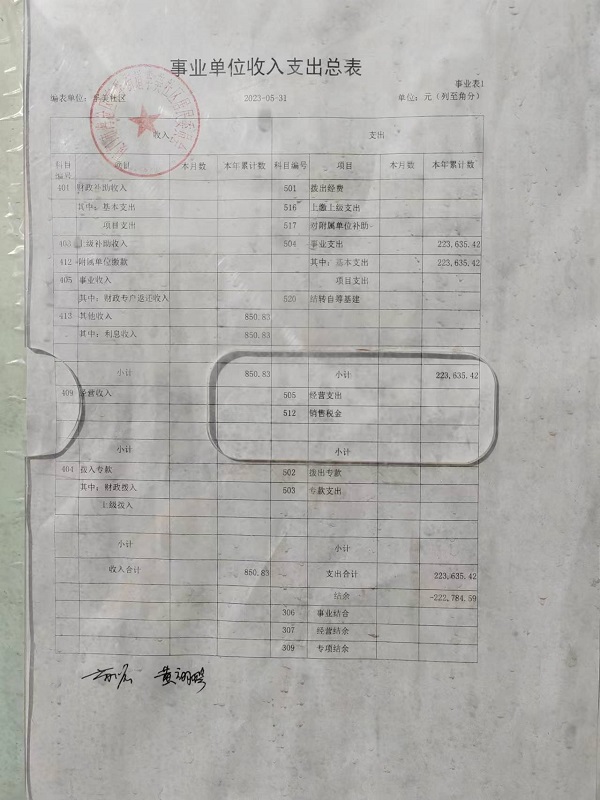 事业单位收入支出总表
事业表1
编表单位：东美社区 2023-05-31 单位：元（列至角分）
收入 支出
科目编号 项目 本月数 本年累计数 科目编号 项目 本月数 本年累计数
401 财政补助收入 501 拨出经费
其中：基本支出 516 上缴上级支出
项目支出 517 对附属单位补助
403 上级补助收入 504 事业支出 223,635.42
412 附属单位缴款 其中：基本支出 223,635.42
405 事业收入 项目支出
其中：财政专户返还收入 520 结转自筹基建
413 其他收入 850.83
其中：利息收入 850.83
小计 850.83 小计 223,635.42
409 经营收入 505 经营支出
512 销售税金
小计 小计
404 拨入专款 502 拨出专款
其中：财政拨入 503 专款支出
上级拨入
小计 小计
收入合计 850.83 支出合计 223,635.42
结余 -222,784.59
306 事业结合
307 经营结余
309 专项结余